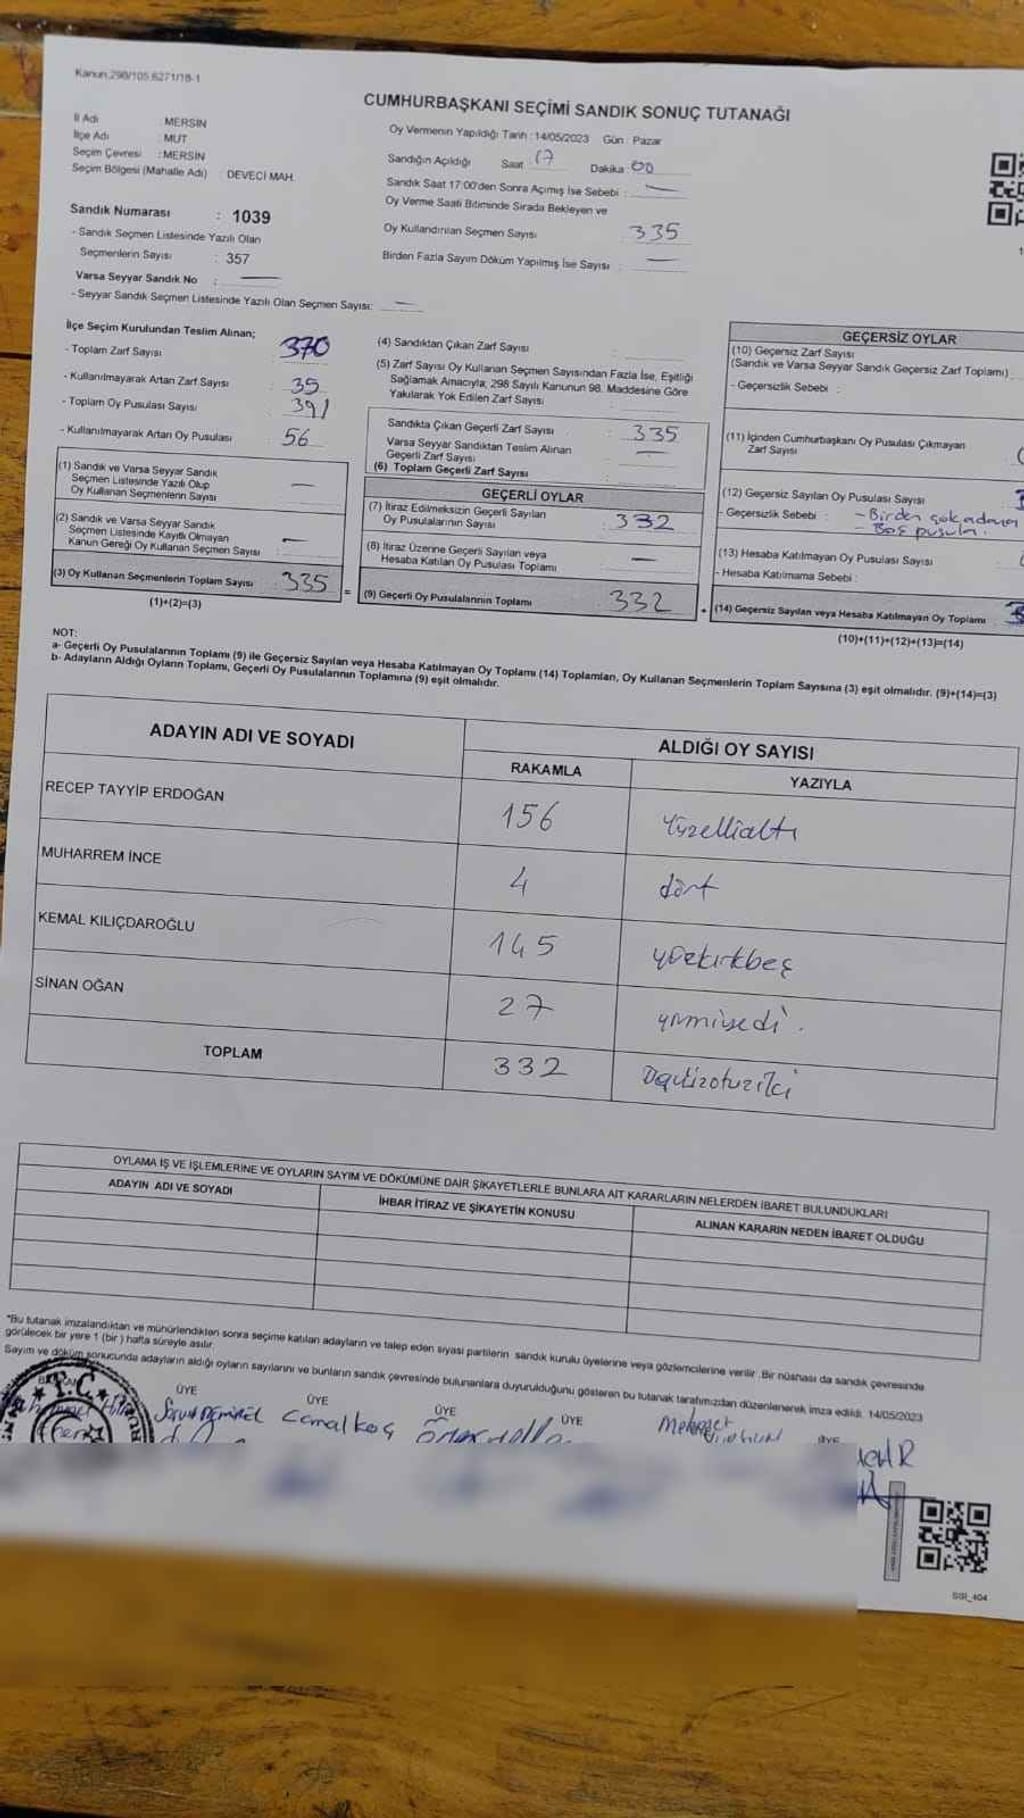 Kanun,298/105,6271/18-1
CUMHURBAŞKANI SEÇİMİ SANDIK SONUÇ TUTANAĞI
İl Adı MERSİN
İlçe Adı : MUT
Seçim Çevresi : MERSİN
Seçim Bölgesi (Mahalle Adı) : DEVECİ MAH.
Oy Vermenin Yapıldığı Tarih : 14/05/2023 Gün : Pazar
Sandığın Açıldığı Saat 17 Dakika : 00
Sandık Saat 17:00'den Sonra Açımış İse Sebebi : —
Oy Verme Saati Bitiminde Sırada Bekleyen ve
Oy Kullandırılan Seçmen Sayısı 335
Birden Fazla Sayım Döküm Yapılmış İse Sayısı : —
Sandık Numarası : 1039
- Sandık Seçmen Listesinde Yazılı Olan
Seçmenlerin Sayısı : 357
Varsa Seyyar Sandık No : —
- Seyyar Sandık Seçmen Listesinde Yazılı Olan Seçmen Sayısı: —
İlçe Seçim Kurulundan Teslim Alınan;
- Toplam Zarf Sayısı 370
- Kullanılmayarak Artan Zarf Sayısı : 35
- Toplam Oy Pusulası Sayısı : 391
- Kullanılmayarak Artan Oy Pusulası : 56
(1) Sandık ve Varsa Seyyar Sandık
Seçmen Listesinde Yazılı Olup
Oy Kullanan Seçmenlerin Sayısı —
(2) Sandık ve Varsa Seyyar Sandık
Seçmen Listesinde Kayıtlı Olmayan
Kanun Gereği Oy Kullanan Seçmen Sayısı : —
(3) Oy Kullanan Seçmenlerin Toplam Sayısı : 335 =
(1)+(2)=(3)
(4) Sandıktan Çıkan Zarf Sayısı :
(5) Zarf Sayısı Oy Kullanan Seçmen Sayısından Fazla İse, Eşitliği
Sağlamak Amacıyla; 298 Sayılı Kanunun 98. Maddesine Göre
Yakılarak Yok Edilen Zarf Sayısı :
Sandıkta Çıkan Geçerli Zarf Sayısı : 335
Varsa Seyyar Sandıktan Teslim Alınan
Geçerli Zarf Sayısı : —
(6) Toplam Geçerli Zarf Sayısı :
GEÇERLİ OYLAR
(7) İtiraz Edilmeksizin Geçerli Sayılan
Oy Pusulalarının Sayısı : 332
(8) İtiraz Üzerine Geçerli Sayılan veya
Hesaba Katılan Oy Pusulası Toplamı : —
(9) Geçerli Oy Pusulalarının Toplamı 332
GEÇERSİZ OYLAR
(10) Geçersiz Zarf Sayısı
(Sandık ve Varsa Seyyar Sandık Geçersiz Zarf Toplamı)
- Geçersizlik Sebebi :
(11) İçinden Cumhurbaşkanı Oy Pusulası Çıkmayan
Zarf Sayısı
(12) Geçersiz Sayılan Oy Pusulası Sayısı
- Geçersizlik Sebebi : - Birden çok adaya
- Boş pusula.
(13) Hesaba Katılmayan Oy Pusulası Sayısı
- Hesaba Katılmama Sebebi :
(14) Geçersiz Sayılan veya Hesaba Katılmayan Oy Toplamı
(10)+(11)+(12)+(13)=(14)
NOT:
a- Geçerli Oy Pusulalarının Toplamı (9) ile Geçersiz Sayılan veya Hesaba Katılmayan Oy Toplamı (14) Toplamları, Oy Kullanan Seçmenlerin Toplam Sayısına (3) eşit olmalıdır. (9)+(14)=(3)
b- Adayların Aldığı Oyların Toplamı, Geçerli Oy Pusulalarının Toplamına (9) eşit olmalıdır.
ADAYIN ADI VE SOYADI
ALDIĞI OY SAYISI
RAKAMLA YAZIYLA
RECEP TAYYİP ERDOĞAN 156 Yüzellialtı
MUHARREM İNCE 4 dört
KEMAL KILIÇDAROĞLU 145 yüzkırkbeş
SİNAN OĞAN 27 yirmiyedi.
TOPLAM 332 üçyüzotuziki
OYLAMA İŞ VE İŞLEMLERİNE VE OYLARIN SAYIM VE DÖKÜMÜNE DAİR ŞİKAYETLERLE BUNLARA AİT KARARLARIN NELERDEN İBARET BULUNDUKLARI
ADAYIN ADI VE SOYADI İHBAR İTİRAZ VE ŞİKAYETİN KONUSU ALINAN KARARIN NEDEN İBARET OLDUĞU
*Bu tutanak imzalandıktan ve mühürlendikten sonra seçime katılan adayların ve talep eden siyasi partilerin sandık kurulu üyelerine veya gözlemcilerine verilir .Bir nüshası da sandık çevresinde
görülecek bir yere 1 (bir ) hafta süreyle asılır
Sayım ve döküm sonucunda adayların aldığı oyların sayılarını ve bunların sandık çevresinde bulunanlara duyurulduğunu gösteren bu tutanak tarafımızdan düzenlenerek imza edildi. 14/05/2023
ÜYE ÜYE ÜYE ÜYE ÜYE
T.C.
Cemal koç
Mehmet
SSR_404